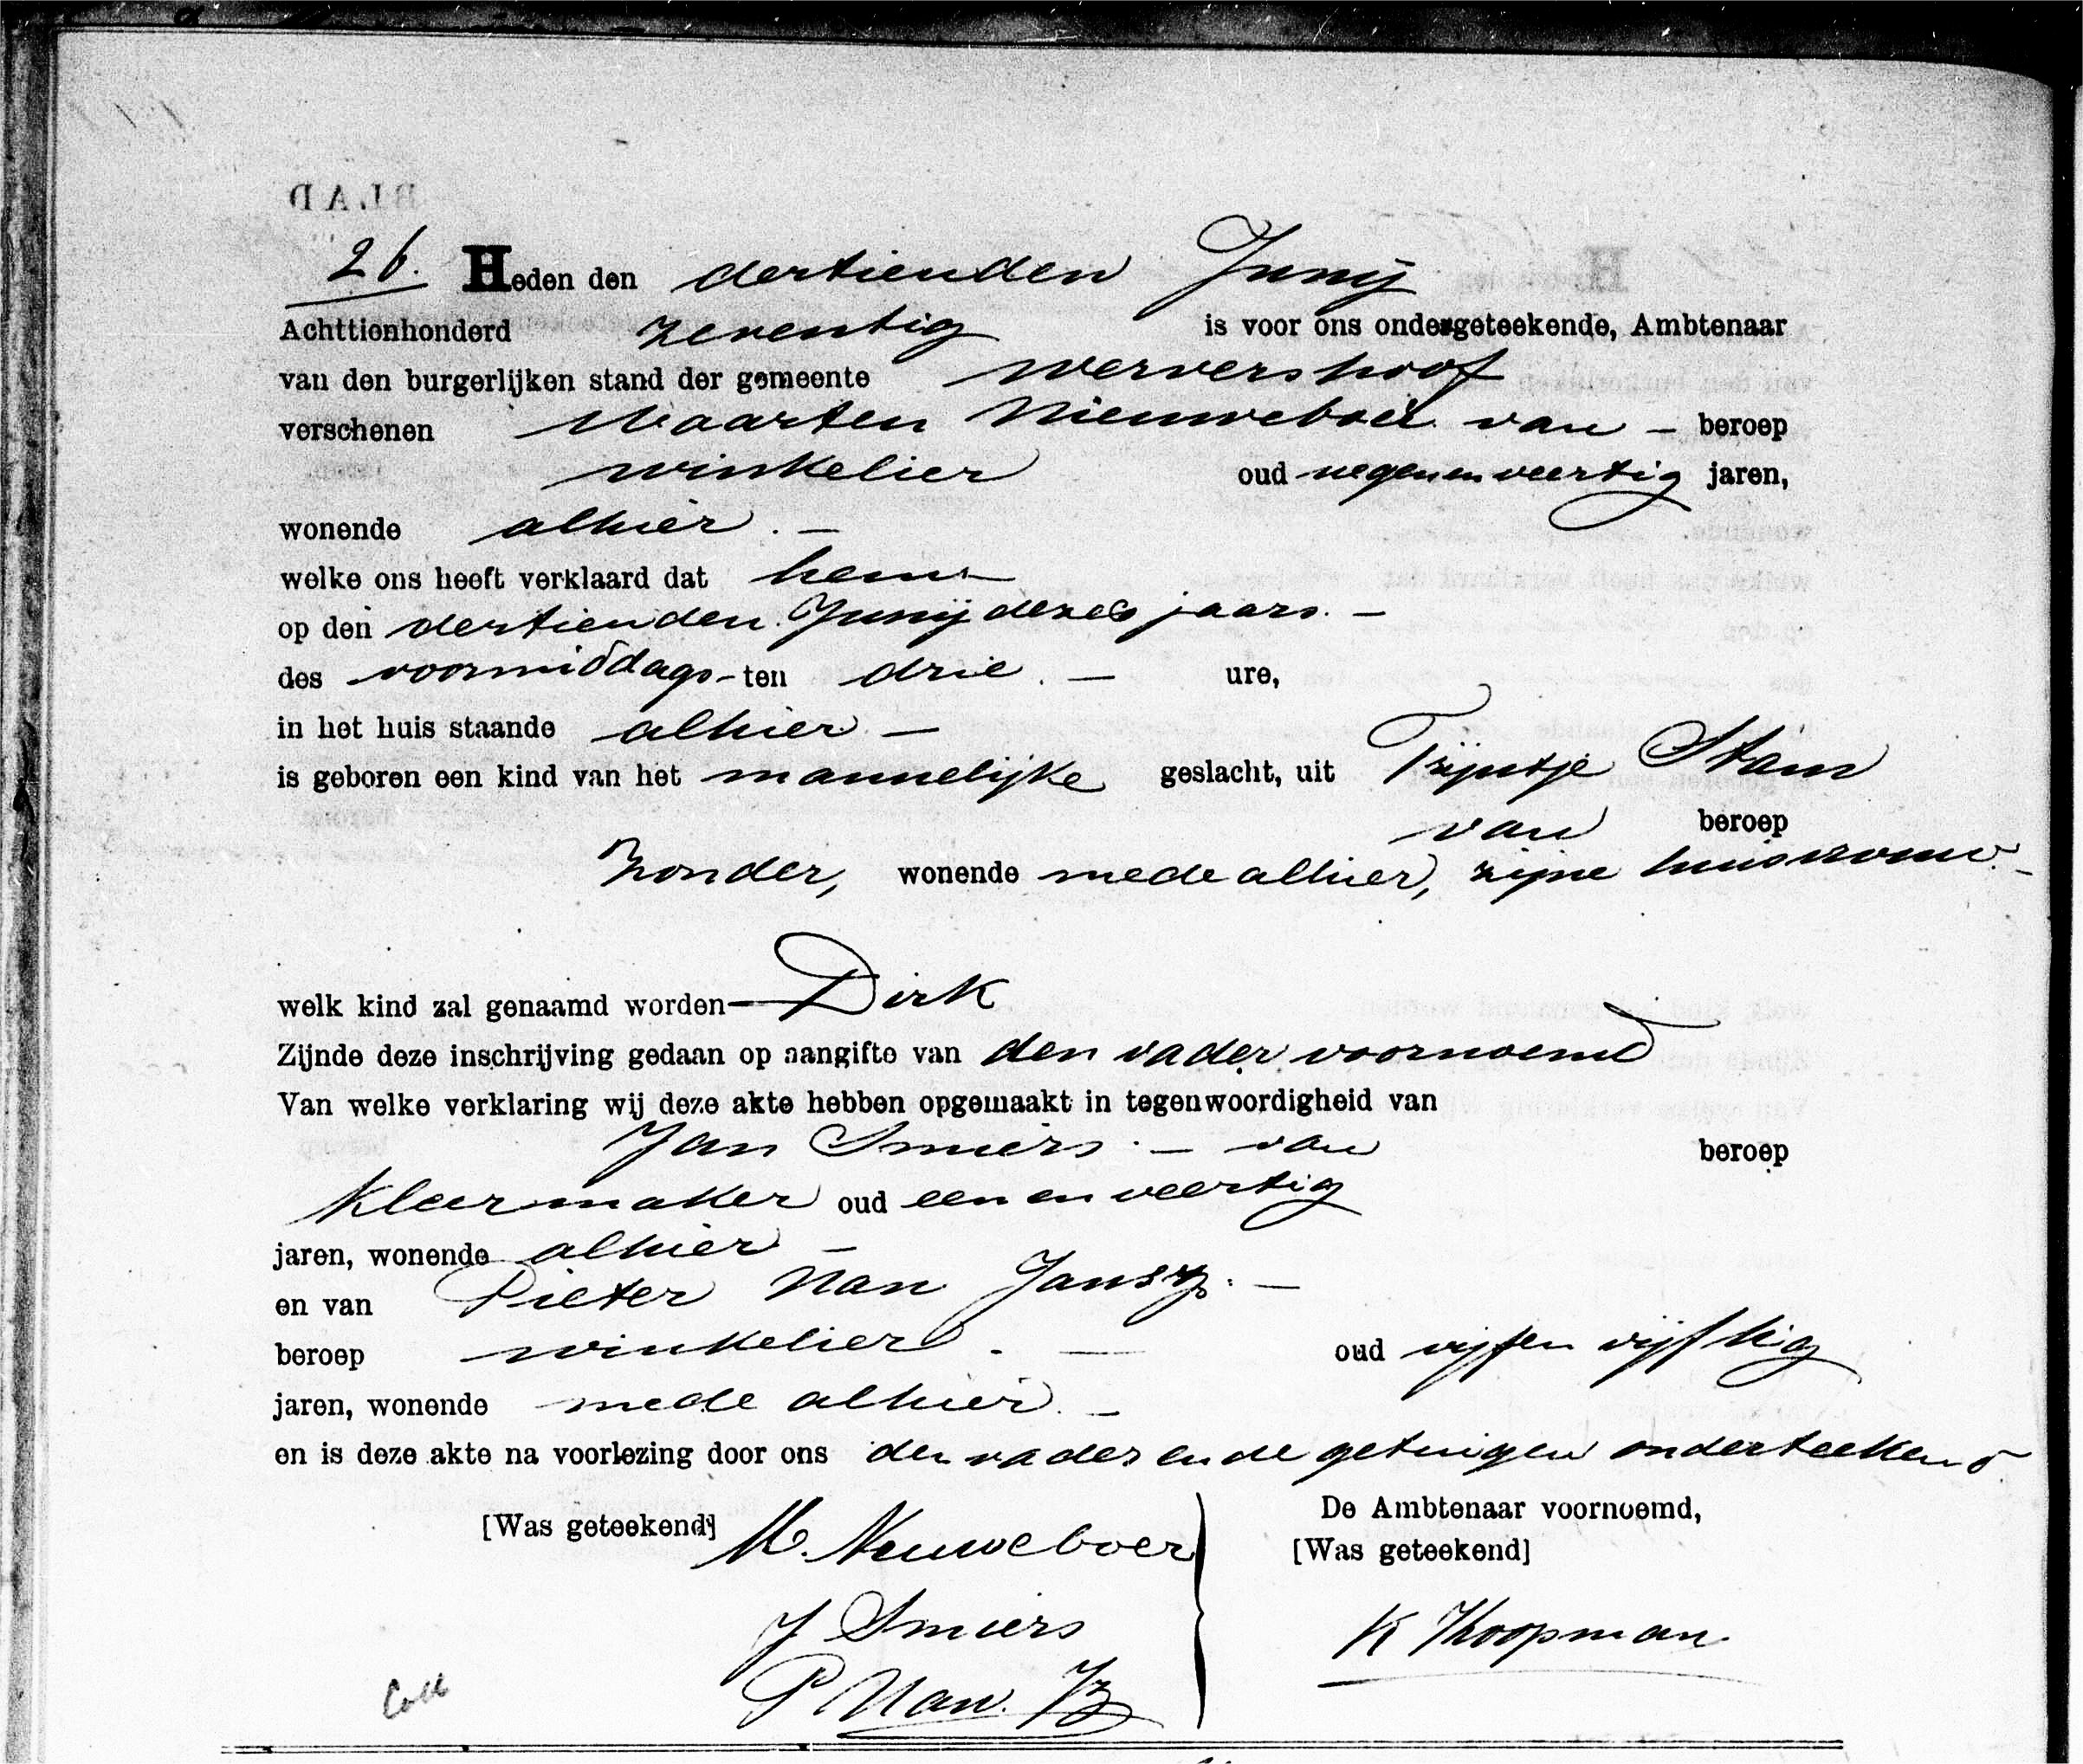 26. Heden den dertienden Junij
Achttienhonderd zeventig is voor ons ondergeteekende, Ambtenaar
van den burgerlijken stand der gemeente Wervershoof
verschenen Maarten Nieuweboer van - beroep
winkelier oud negenenveertig jaren,
wonende alhier. -
welke ons heeft verklaard dat hem -
op den dertienden Junij dezes jaars. -
des voormiddags - ten drie. - ure,
in het huis staande alhier -
is geboren een kind van het mannelijke geslacht, uit Trijntje Stam
van beroep
zonder, wonende mede alhier, zijne huisvrouw. -
welk kind zal genaamd worden - Dirk
Zijnde deze inschrijving gedaan op aangifte van den vader voornoemd
Van welke verklaring wij deze akte hebben opgemaakt in tegenwoordigheid van
Jan Smiers - van beroep
Kleermaker oud een en veertig
jaren, wonende alhier -
en van Pieter Nan Jansz. -
beroep winkelier. - oud vijfen vijftig
jaren, wonende mede alhier. -
en is deze akte na voorlezing door ons den vader en de getuigen onderteekend.
[Was geteekend] M. Nieuweboer
J Smiers
P Nan. Jz
De Ambtenaar voornoemd,
[Was geteekend]
K Koopman
Coll